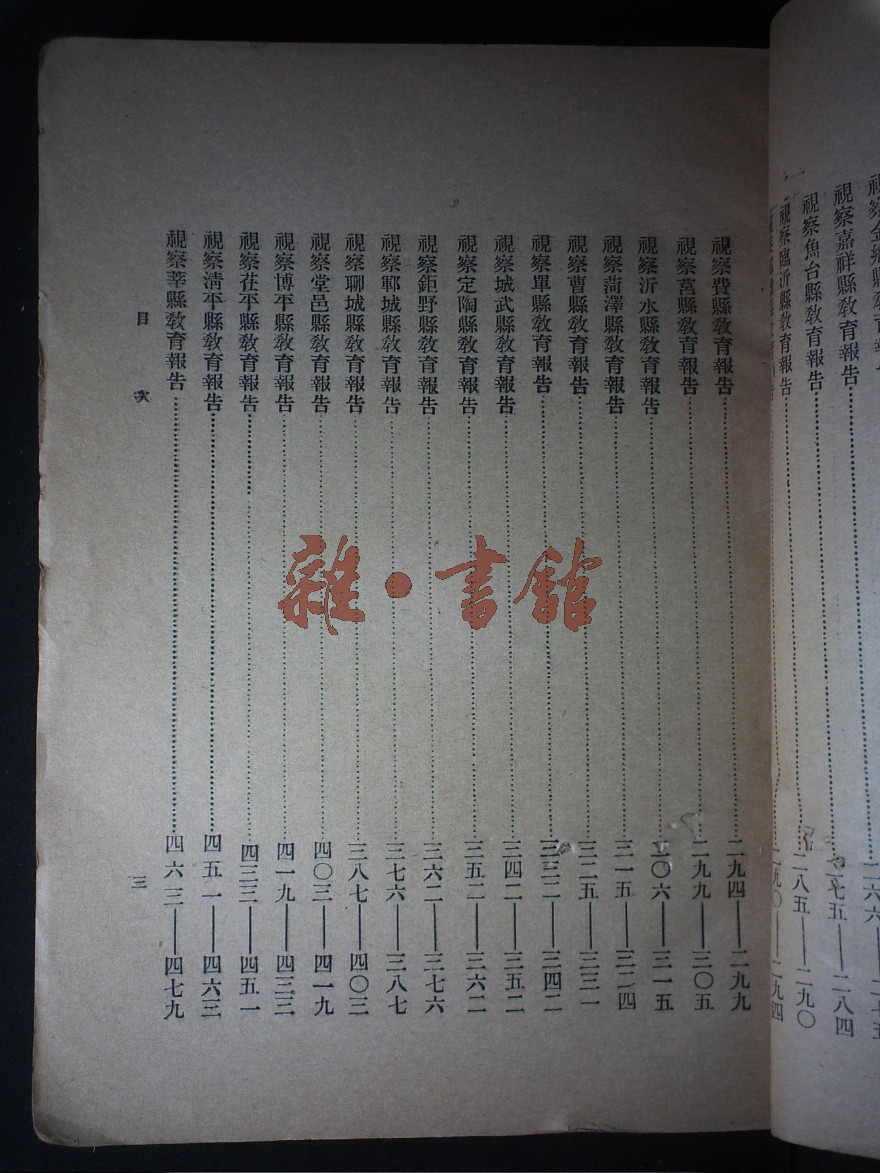 視察嘉祥縣敎育報告 二七五——二八四
視察魚台縣敎育報告 二八五——二九〇
視察臨沂縣敎育報告 二九〇——二九四
視察費縣敎育報告 二九四——二九九
視察莒縣敎育報告 二九九——三〇五
視察沂水縣敎育報告 三〇六——三一五
視察菏澤縣敎育報告 三一五——三二四
視察曹縣敎育報告 三二五——三三一
視察單縣敎育報告 三三二——三四二
視察城武縣敎育報告 三四二——三五二
視察定陶縣敎育報告 三五二——三六二
視察鉅野縣敎育報告 三六二——三七六
視察鄆城縣敎育報告 三七六——三八七
視察聊城縣敎育報告 三八七——四〇三
視察堂邑縣敎育報告 四〇三——四一九
視察博平縣敎育報告 四一九——四三三
視察茌平縣敎育報告 四三三——四五一
視察清平縣敎育報告 四五一——四六三
視察莘縣敎育報告 四六三——四七九
目次 三
雜·書館